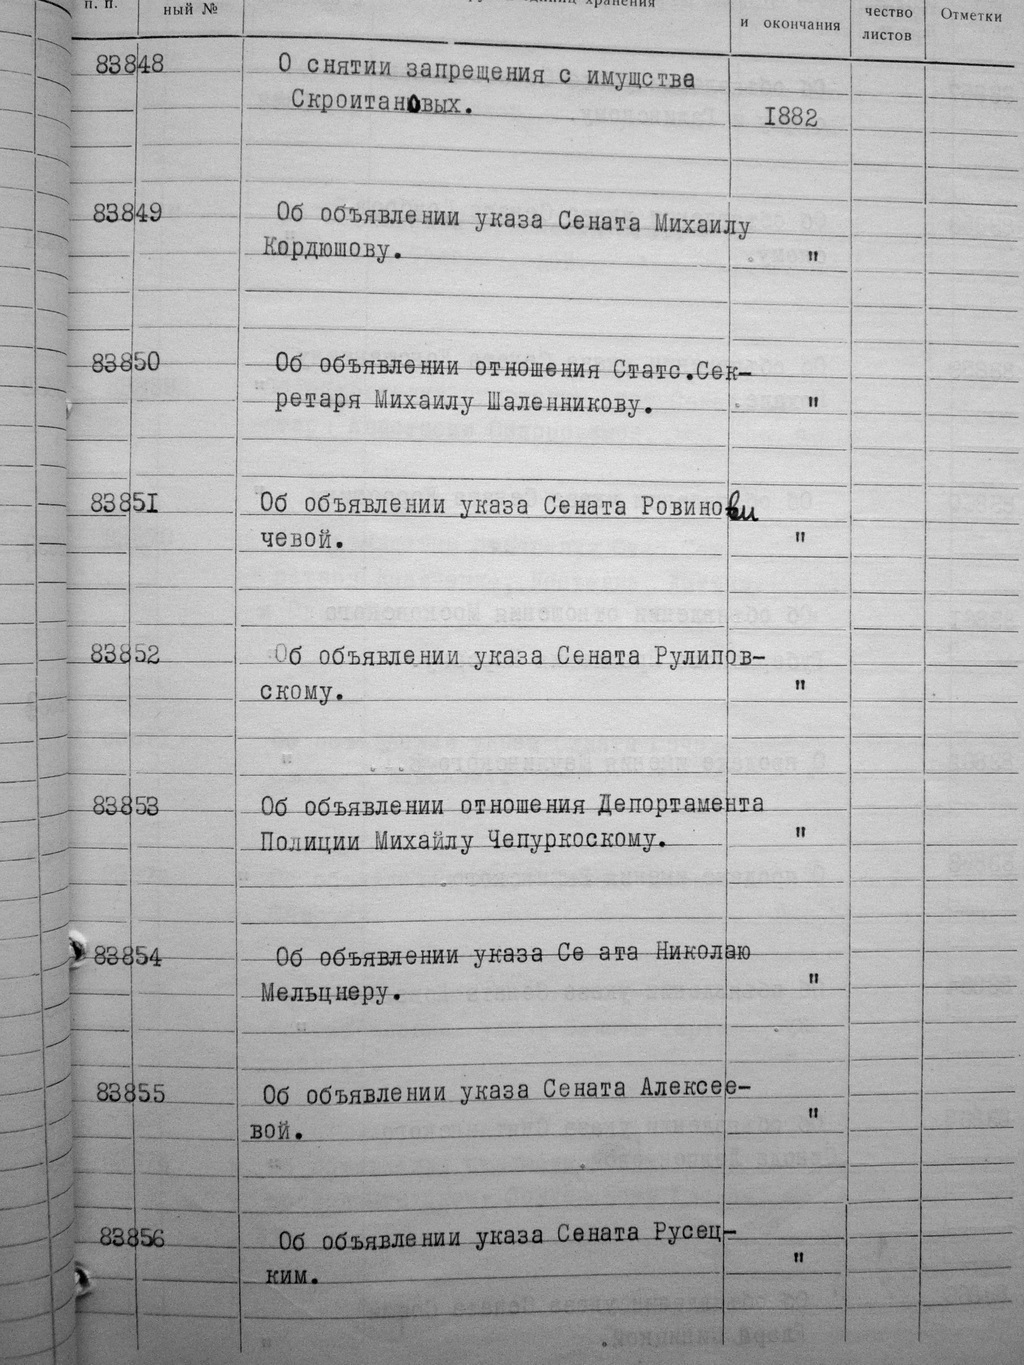 п. п.
ный №
хранения
и окончания
чество
листов
Отметки
83848 О снятии запрещения с имущства
Скроитановых. 1882
83849 Об объявлении указа Сената Михаилу
Кордюшову. "
83850 Об объявлении отношения Статс.Сек-
ретаря Михаилу Шаленникову. "
83851 Об объявлении указа Сената Ровинови
чевой. "
83852 Об объявлении указа Сената Рулипов-
скому. "
83853 Об объявлении отношения Депортамента
Полиции Михайлу Чепуркоскому. "
83854 Об объявлении указа Се ата Николаю
Мельцнеру. "
83855 Об объявлении указа Сената Алексее-
вой. "
83856 Об объявлении указа Сената Русец-
ким. "